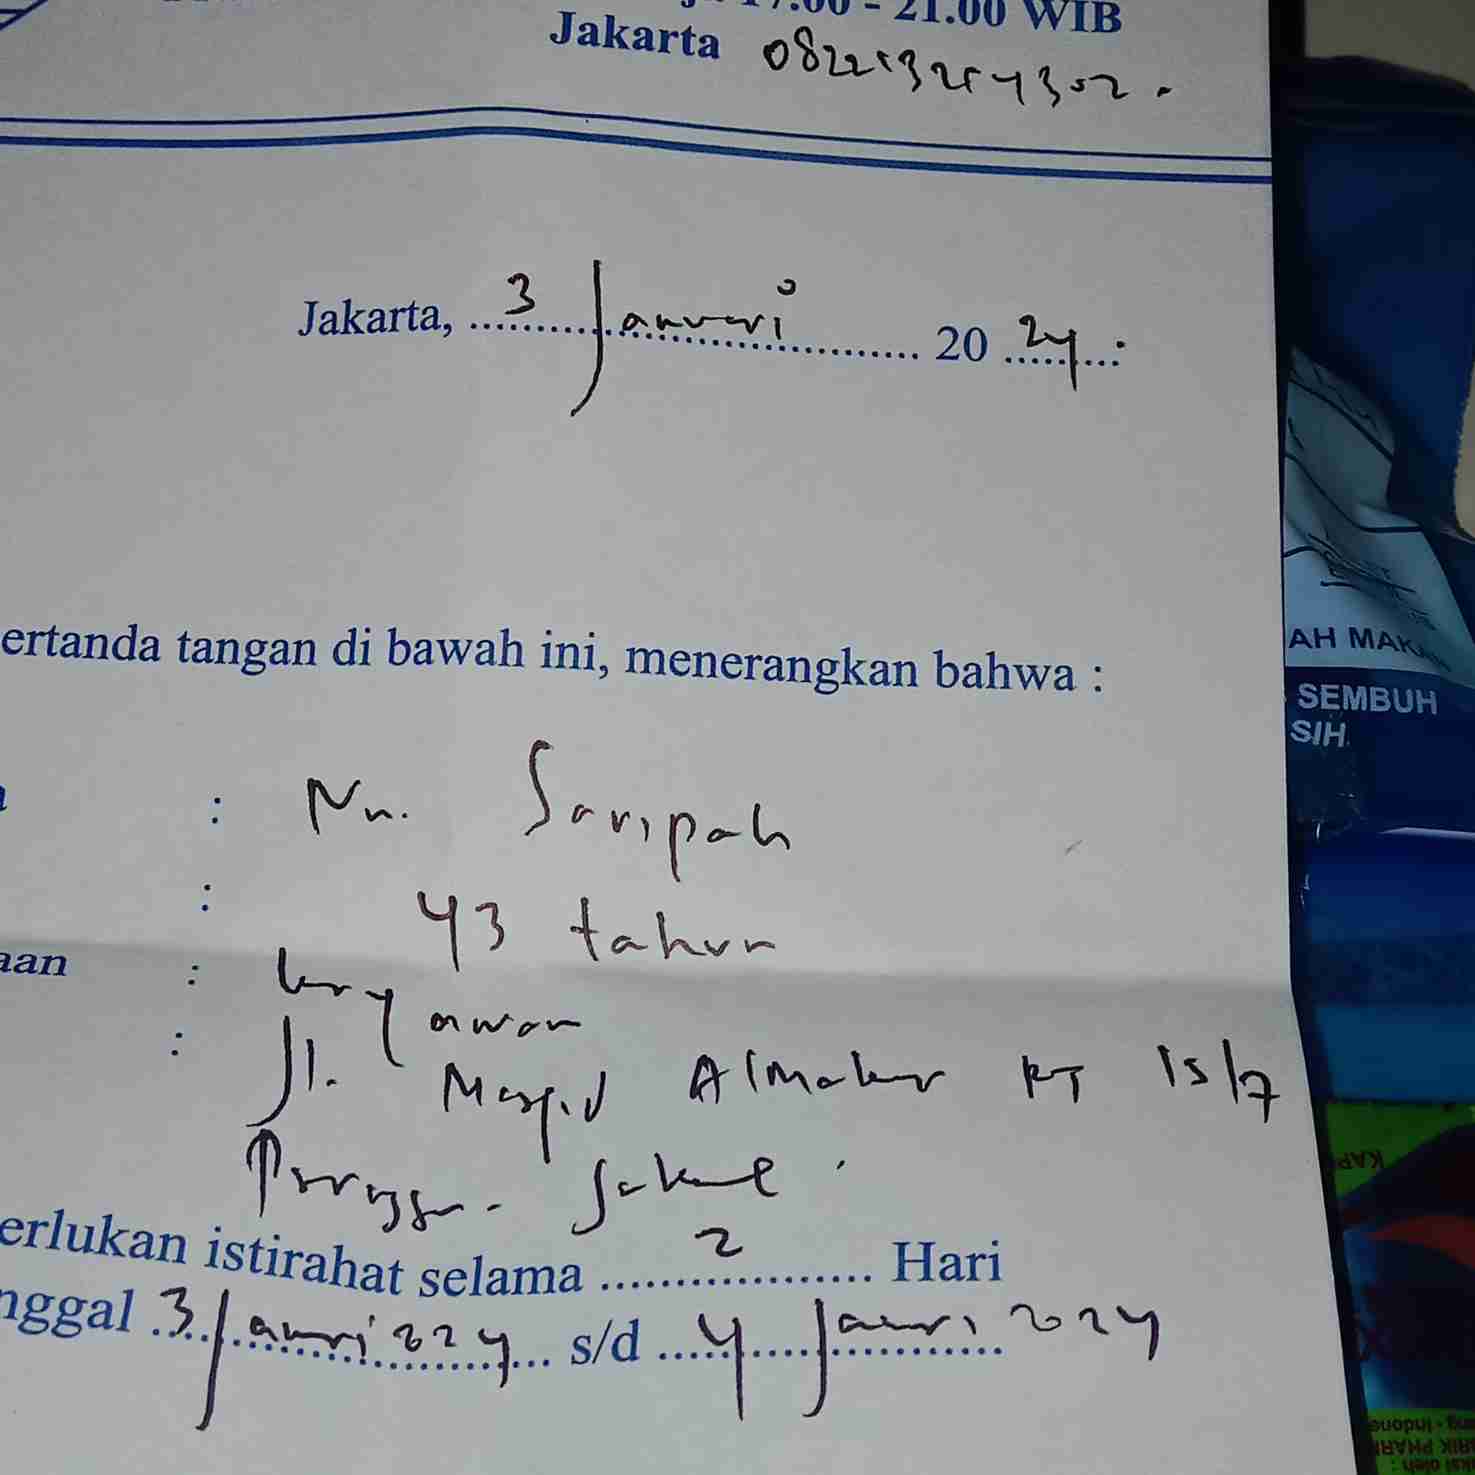 17.00 - 21.00 WIB
Jakarta
Jakarta, 3 Januari 20 24
ertanda tangan di bawah ini, menerangkan bahwa :
: Nn. Saripah
: 43 tahun
aan : karyawan
: Jl. Masjid Almakmur RT 15/7
erlukan istirahat selama 2 Hari
nggal 3 Januari 2024 s/d 4 Januari 2024
AH MAKAN
SEMBUH
SIH
KAP